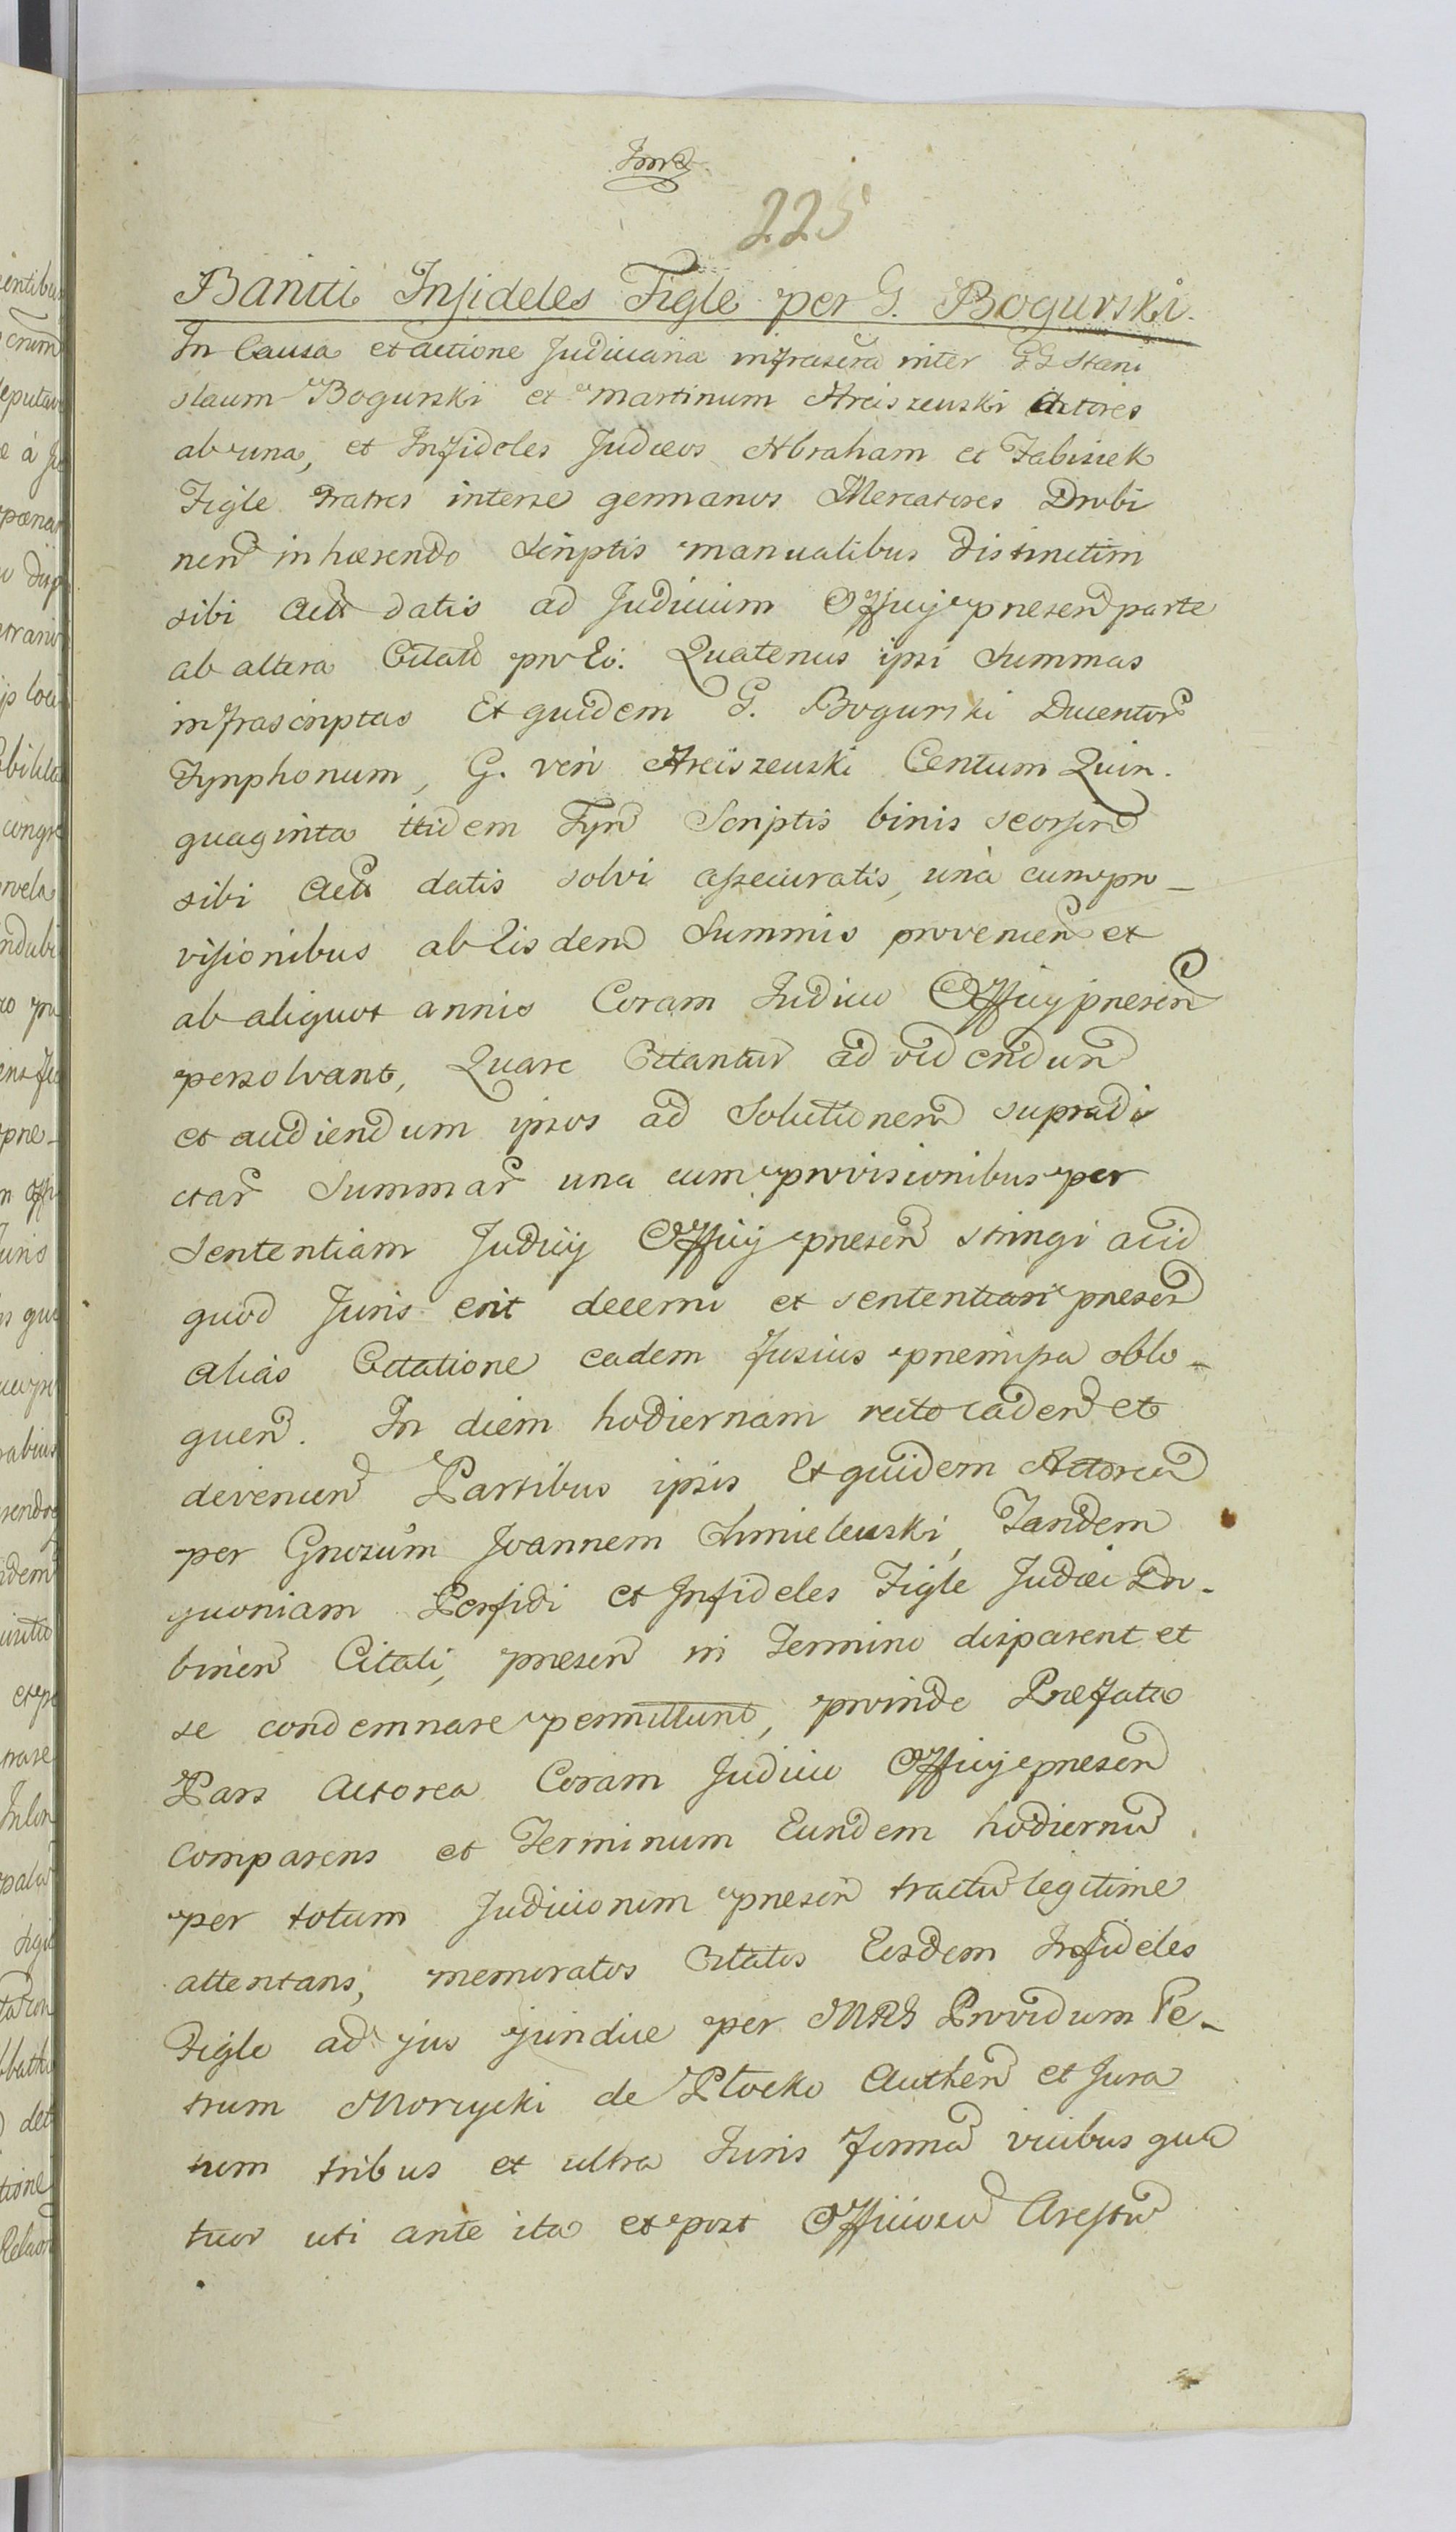 225
Baniti Infideles Figle per G. Bogurski.
In Causa et actione Judiciaria infrascra inter GG Stani
slaum Bogurski et Martinum Arciszewski Actores
ab una, et Infideles Judæos Abraham et Fabisiek
Figle Fratres interse germanos Mercatores Drobi
nen inhærendo scriptis manualibus distinctim
sibi datis ad Judicium Officij presen parte
ab altera Citatt pro Eo. Quatenus ipsi Summas
infrascriptas Et quidem G. Bogurski Ducentor
Tymphonum, G. vero Arciszewski Centum Quin.
quaginta itidem Tyn Scriptis binis seorsim
sibi datis solvi assecuratis, una cum pro_
visionibus ab Eisdem Summis provenien et
ab aliquot annis Coram Judicio Officij presen
persolvant, Quare Citantur ad videndum
et audiendum ipsos ad Solutionem supradi
ctar Summar una cum provisionibus per
Sententiam Judicij Officij presen stringi acid
quod Juris erit decerni et sententiari presen
alias Citatione eadem fusius premissa oblo_
quen. In diem hodiernam recto caden et
devenien Partibus ipsis, Et quidem Actorea
per Gnosum Joannem Chmielewski, Tandem
quoniam Perfidi et Infideles Figle Judæi Dro_
binen Citati, presen in Termino disparent et
se condemnare permittunt, proinde Prefata
Pars Actorea Coram Judicio Officij presen
comparens et Terminum Eundem hodiernu
per totum Judiciorum presen tractu legitime
attentans, memoratos Citatos Eosdem Infideles
Figle ad jus juridice per MRS Providum Pe_
trum Morzycki de Plocko Authen et Jura
tum tribus et ultra Juris forma vicibus qua
tuor uti ante ita et post Officiosu Arestu